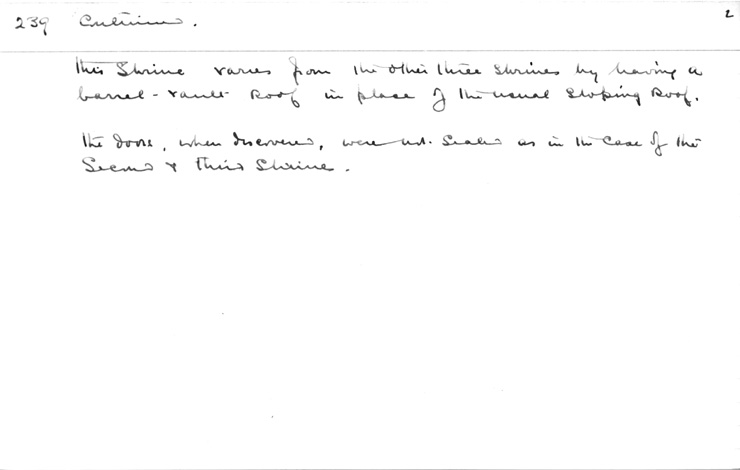 239 Continued. 2
This Shrine varies from the other three shrines by having a
barrel-vault roof in place of the usual sloping roof.
The doors, when discovered, were not sealed as in the case of the
Second & third Shrine.